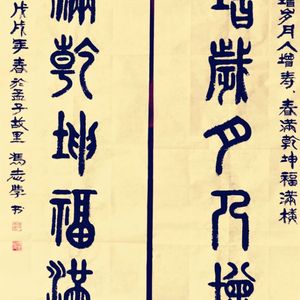 增岁月人增寿、春滿乾坤福滿樓
增歲月人增
滿乾坤福滿
戊戌年春於孟子故里馮志學书